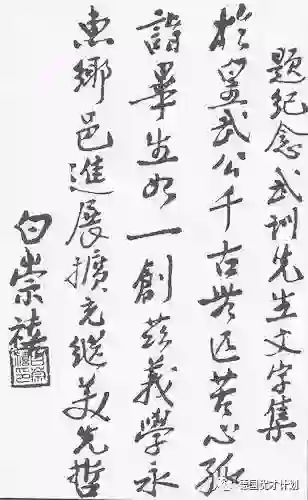 題紀念武訓先生文字集
於皇武公千古無匹苦心孤
詣畢生如一創茲義學永
惠鄉邑進展擴充繼美先哲
白崇禧